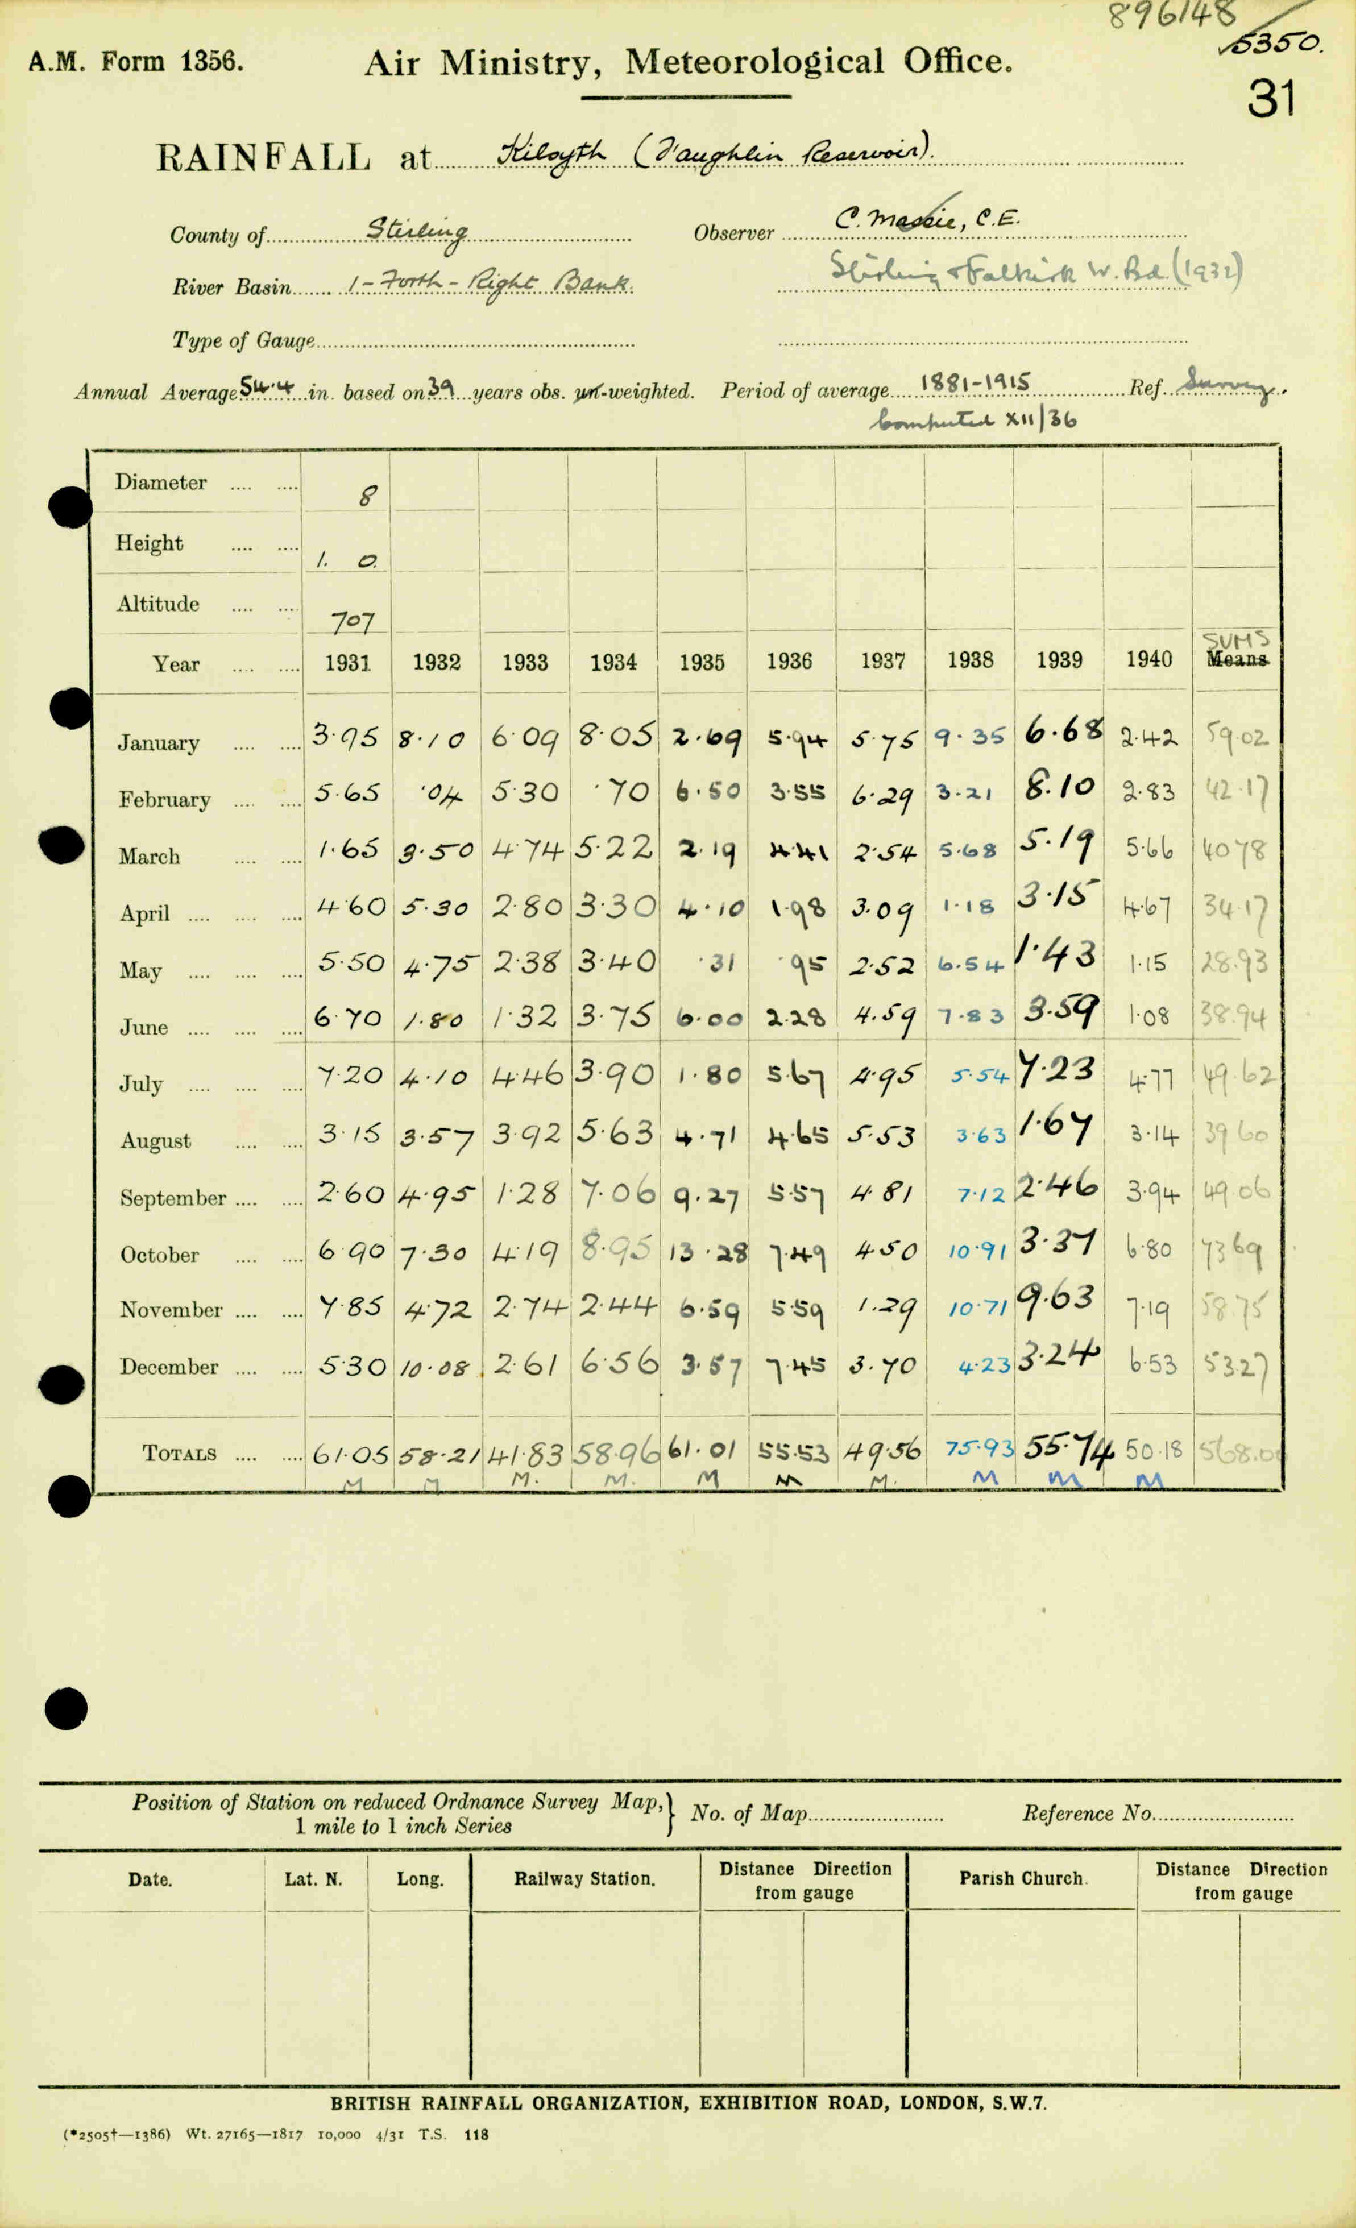 896148
5350.
A.M. Form 1356.
Air Ministry, Meteorological Office.
31
RAINFALL at Kilsyth (Faughlin Reservoir).
County of Stirling Observer C. Massie, C.E.
River Basin 1-Forth-Right Bank Stirling & Falkirk W. Bd. (1932)
Type of Gauge
Annual Average 54.4 in. based on 39 years obs. un-weighted. Period of average 1881-1915 Ref. Survey.
Computed XII/36
Diameter 8
Height 1. 0.
Altitude 707
SUMS
Year 1931 1932 1933 1934 1935 1936 1937 1938 1939 1940 Means
January 3.95 8.10 6.09 8.05 2.69 5.94 5.75 9.35 6.68 2.42 59.02
February 5.65 .04 5.30 .70 6.50 3.55 6.29 3.21 8.10 2.83 42.17
March 1.65 3.50 4.74 5.22 2.19 4.41 2.54 5.68 5.19 5.66 40.78
April 4.60 5.30 2.80 3.30 4.10 1.98 3.09 1.18 3.15 4.67 34.17
May 5.50 4.75 2.38 3.40 .31 .95 2.52 6.54 1.43 1.15 28.93
June 6.70 1.80 1.32 3.75 6.00 2.28 4.59 7.83 3.59 1.08 38.94
July 7.20 4.10 4.46 3.90 1.80 5.67 4.95 5.54 7.23 4.77 49.62
August 3.15 3.57 3.92 5.63 4.71 4.65 5.53 3.63 1.67 3.14 39.60
September 2.60 4.95 1.28 7.06 9.27 5.57 4.81 7.12 2.46 3.94 49.06
October 6.90 7.30 4.19 8.95 13.28 7.49 4.50 10.91 3.37 6.80 73.69
November 7.85 4.72 2.74 2.44 6.59 5.59 1.29 10.71 9.63 7.19 58.75
December 5.30 10.08 2.61 6.56 3.57 7.45 3.70 4.23 3.24 6.53 53.27
TOTALS 61.05 58.21 41.83 58.96 61.01 55.53 49.56 75.93 55.74 50.18 568.00
M M M. M. M M M. M M M
Position of Station on reduced Ordnance Survey Map,
1 mile to 1 inch Series
No. of Map Reference No.
Date. Lat. N. Long. Railway Station. Distance Direction from gauge Parish Church. Distance Direction from gauge
BRITISH RAINFALL ORGANIZATION, EXHIBITION ROAD, LONDON, S.W.7.
(*2505†—1386) Wt. 27165—1817 10,000 4/31 T.S. 118